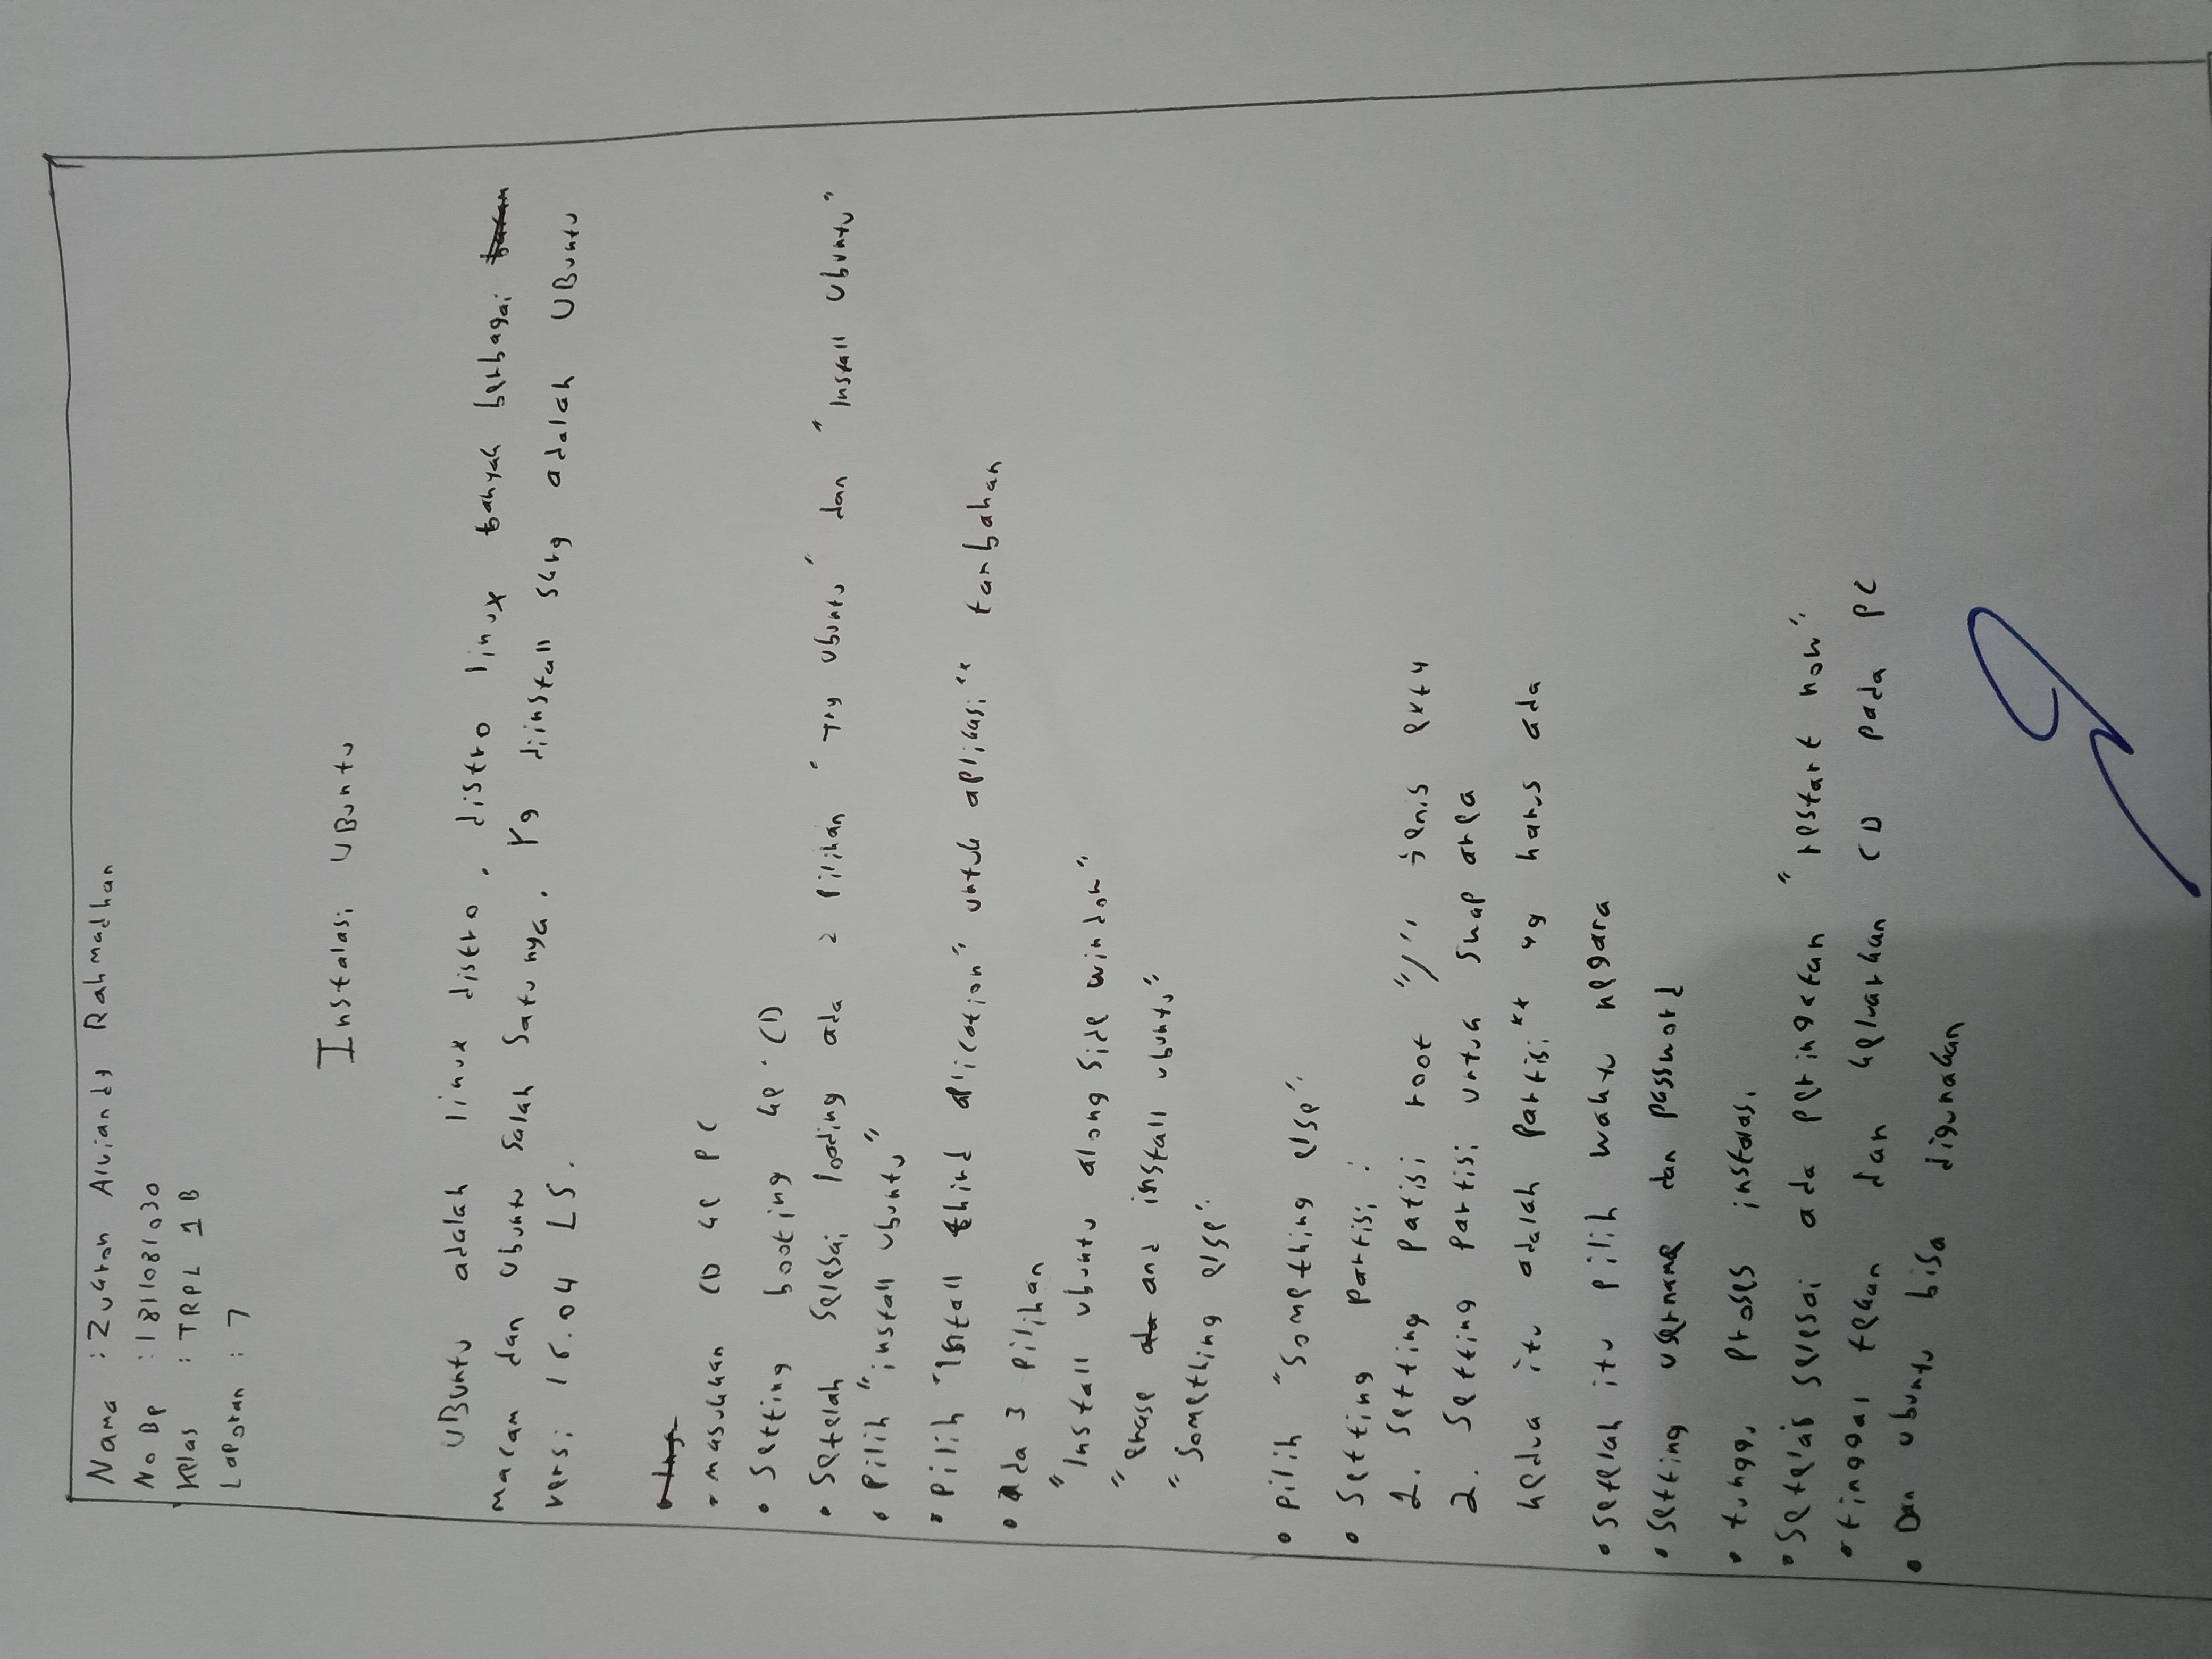 Nama : Zukron Alviandy Rahmadhan
No Bp : 1811081030
Kelas : TRPL 1 B
Laporan : 7
Instalasi UBuntu
UBuntu adalah linux distro, distro linux banyak berbagai
macam dan Ubuntu salah satunya. Yg diinstall skrg adalah UBuntu
versi 16.04 LS.
• masukkan CD ke PC
• Setting booting ke CD
• Setelah selesai loading ada 2 pilihan "Try Ubuntu" dan "Install Ubuntu"
• Pilih "install Ubuntu"
• Pilih "Install third aplication" untuk aplikasi** tambahan
• Ada 3 pilihan
"Install ubuntu along side window"
"erase and install ubuntu"
"Something else"
• pilih "Something else"
• Setting partisi :
1. Setting patisi root "/" jenis ext4
2. Setting partisi untuk swap area
kedua itu adalah partisi** yg harus ada
• Setelah itu pilih waktu negara
• Setting username dan password
• tunggu proses instalasi
• Setelah selesai ada peringatan "restart now"
• tinggal tekan dan keluarkan CD pada PC
• Dan Ubuntu bisa digunakan